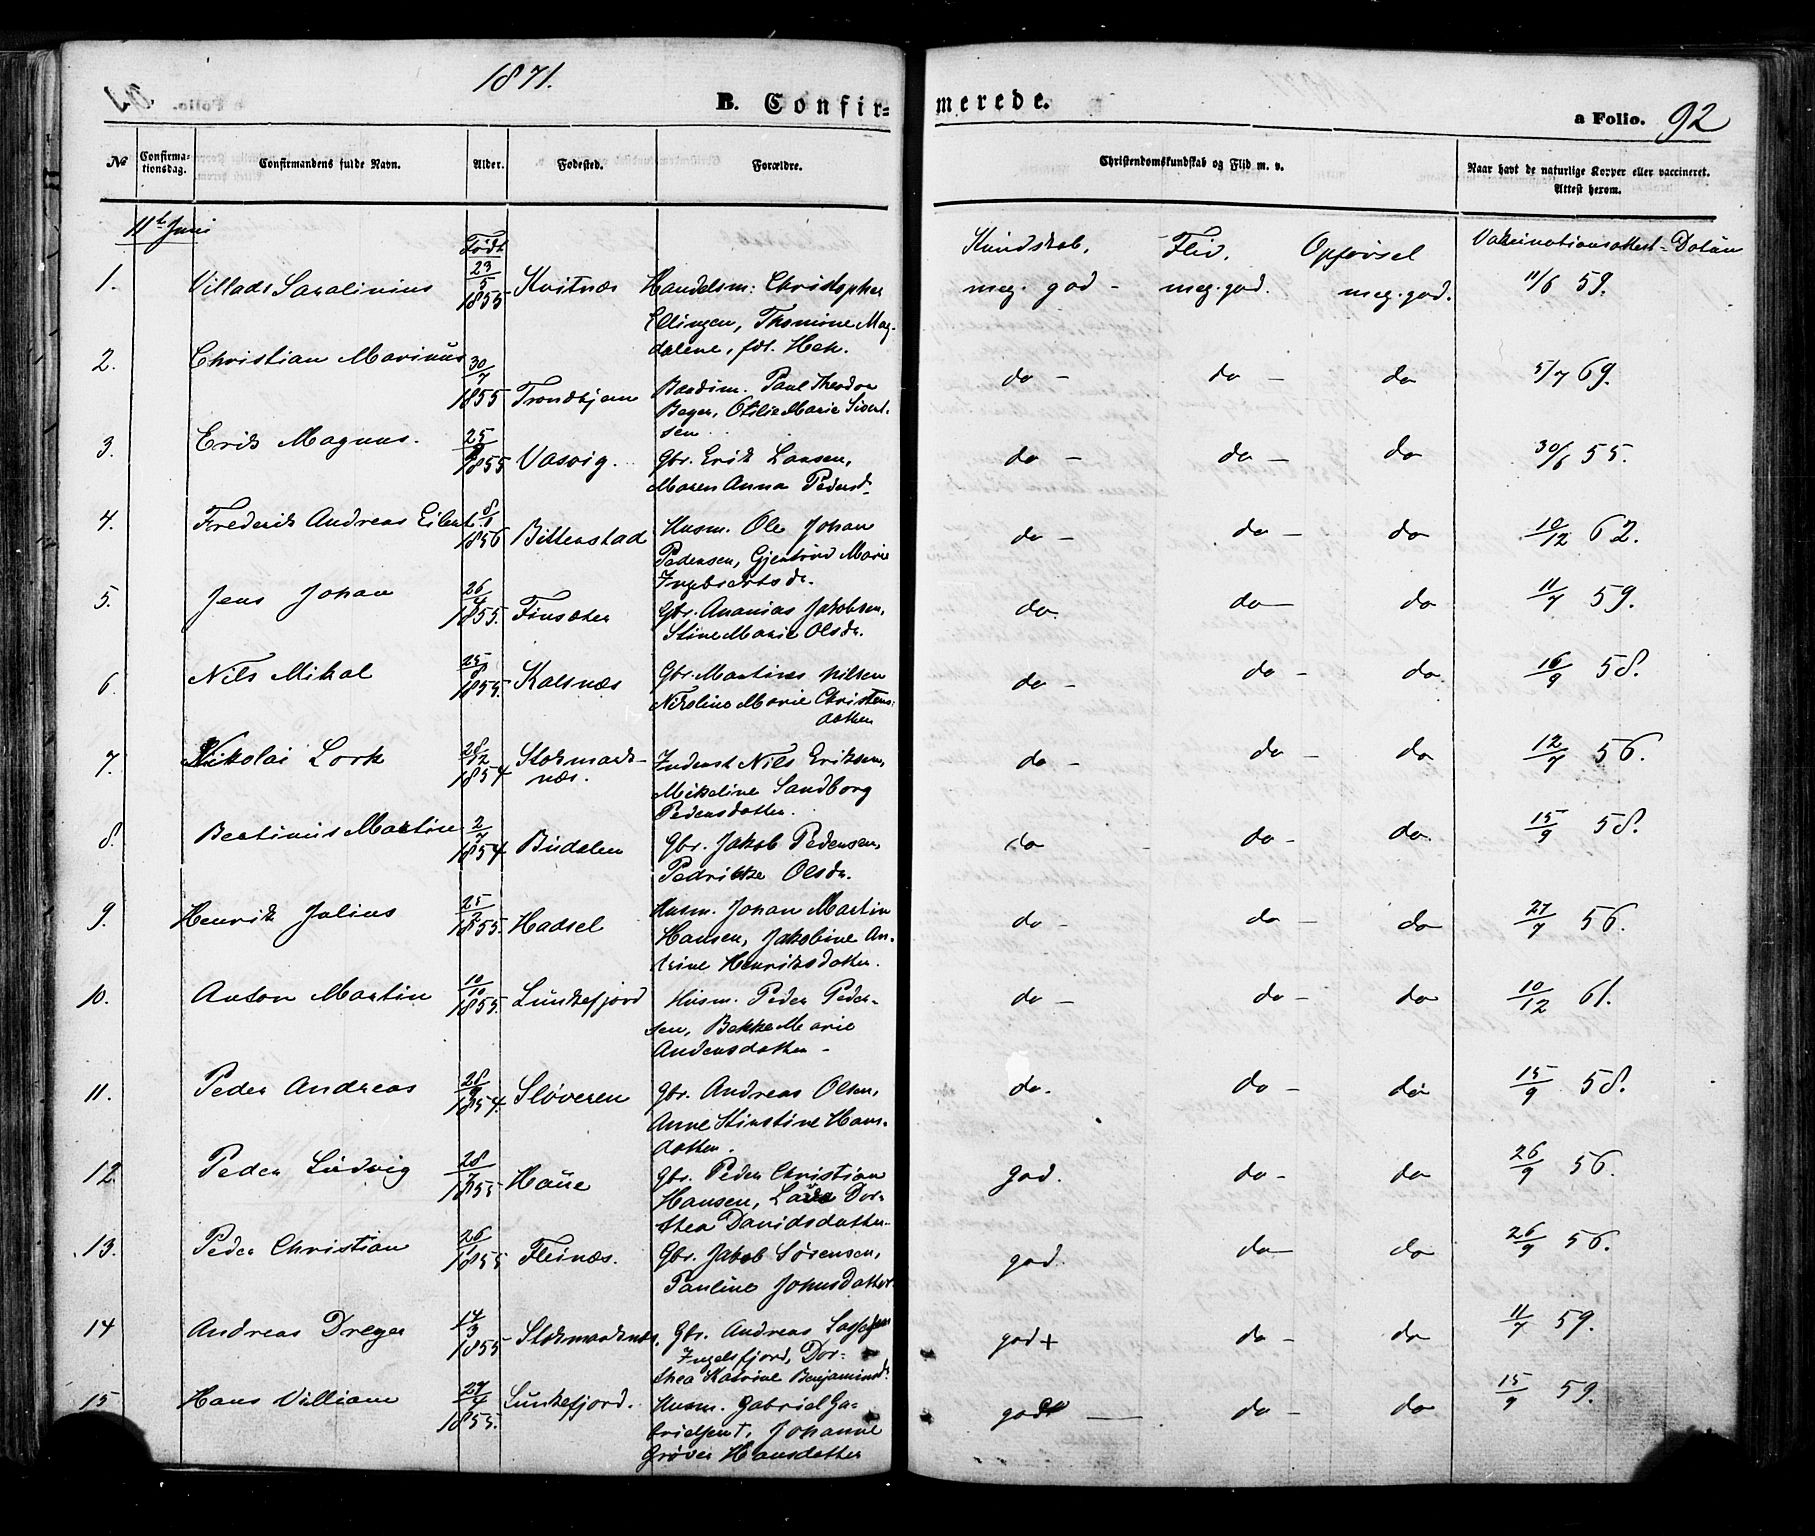 1871.
B. Confir-
merede.
a Folio. 92
No
Confirma-
tionsdag.
Confirmandens fulde Navn.
Alder.
Fødested.
Forældre.
Christendomskundskab og Flid m. v.
Naar havt de naturlige Kopper eller vaccineret.
Attest herom.
11te Juni
Født
Kundskab, Flid, Opførsel Vaksinationsattest-Datum
1. Villads Saralinius 23/5 1855 Kvitnæs Handelsm: Christopher
Ellingsen, Thomine Mag-
dalene, fdt. Hek.
meg. god - meg. god. meg. god. 11/6 59.
2. Christian Marinus 30/7 1855 Trondhjem Bundtm. Paul Theodor
Beyer, Otilie Marie Sivert-
sen
do - do - do 5/7 69.
3. Erik Magnus. 25/ 1855 Vasvig. Gbr. Erik Larsen,
Maren Anna Pedersd.
do - do - do 30/6 55.
4. Frederik Andreas Eilert 8/1 1856 Bitterstad Husm. Ole Johan
Pedersen, Gjertrud Marie
Ingebrertsdr.
do - do - do 10/12 62.
5. Jens Johan 26/4 1855. Finsæter Gbr. Ananias Jakobsen,
Stine Marie Olsdr.
do. do - do 11/7 59.
6. Nils Mikal 25/8 1855. Kalsnæs Gbr. Martines Nilsen
Nikoline Marie Christens-
datter
do - do - do. 16/9 58.
7. Nikolai Lork 28/12 1854 Stokmark-
næs. Inderst Nils Eriksen,
Mikeline Sandborg
Pedersdatter.
do - do - do 12/7 56.
8. Bertinius Martin 2/7 1854. Budalen Gbr. Jakob Pedersen,
Pedrikke Olsdr.
do - do - do. 15/9 58.
9. Henrik Julius 25/2 1855. Hadsel Husm. Johan Martin
Hansen, Jakobine An-
trine Henriksdatter.
do - do - do 27/7 56.
10. Anton Martin 10/10 1855. Lunkefjord Husm. Peder Peder-
sen, Bekke Marie
Andersdatter -
do - do - do 10/12 61.
11. Peder Andreas 28/9 1854. Sløveren Gbr. Andreas Olsen,
Anne Stinstine Hans-
datter.
do. do - do 15/9 58.
12. Peder Ludvig 28/7 1855 Haue Gbr. Peder Christian
Hansen, Dor-
thea Davidsdatter.
god. do - do 26/9 56.
13. Peder Christian 26/1 1855 Fleinæs. Gbr. Jakob Sørensen,
Pauline Johnsdatter
god. do - do 26/9 56.
14 Andreas Dreyer 14/3 1855 Stokmarknæs. Gbr. Andreas
Ingelsfjord, Dor-
thea Katrine Benjaminsd.
god + do - do 11/7 59.
15 Hans Villiam 27/4 1855. Lunkefjord. Husm. Gabriel Ga-
brielsen †, Johanne
Grøver Hansdatter
god do - do 15/9 59.